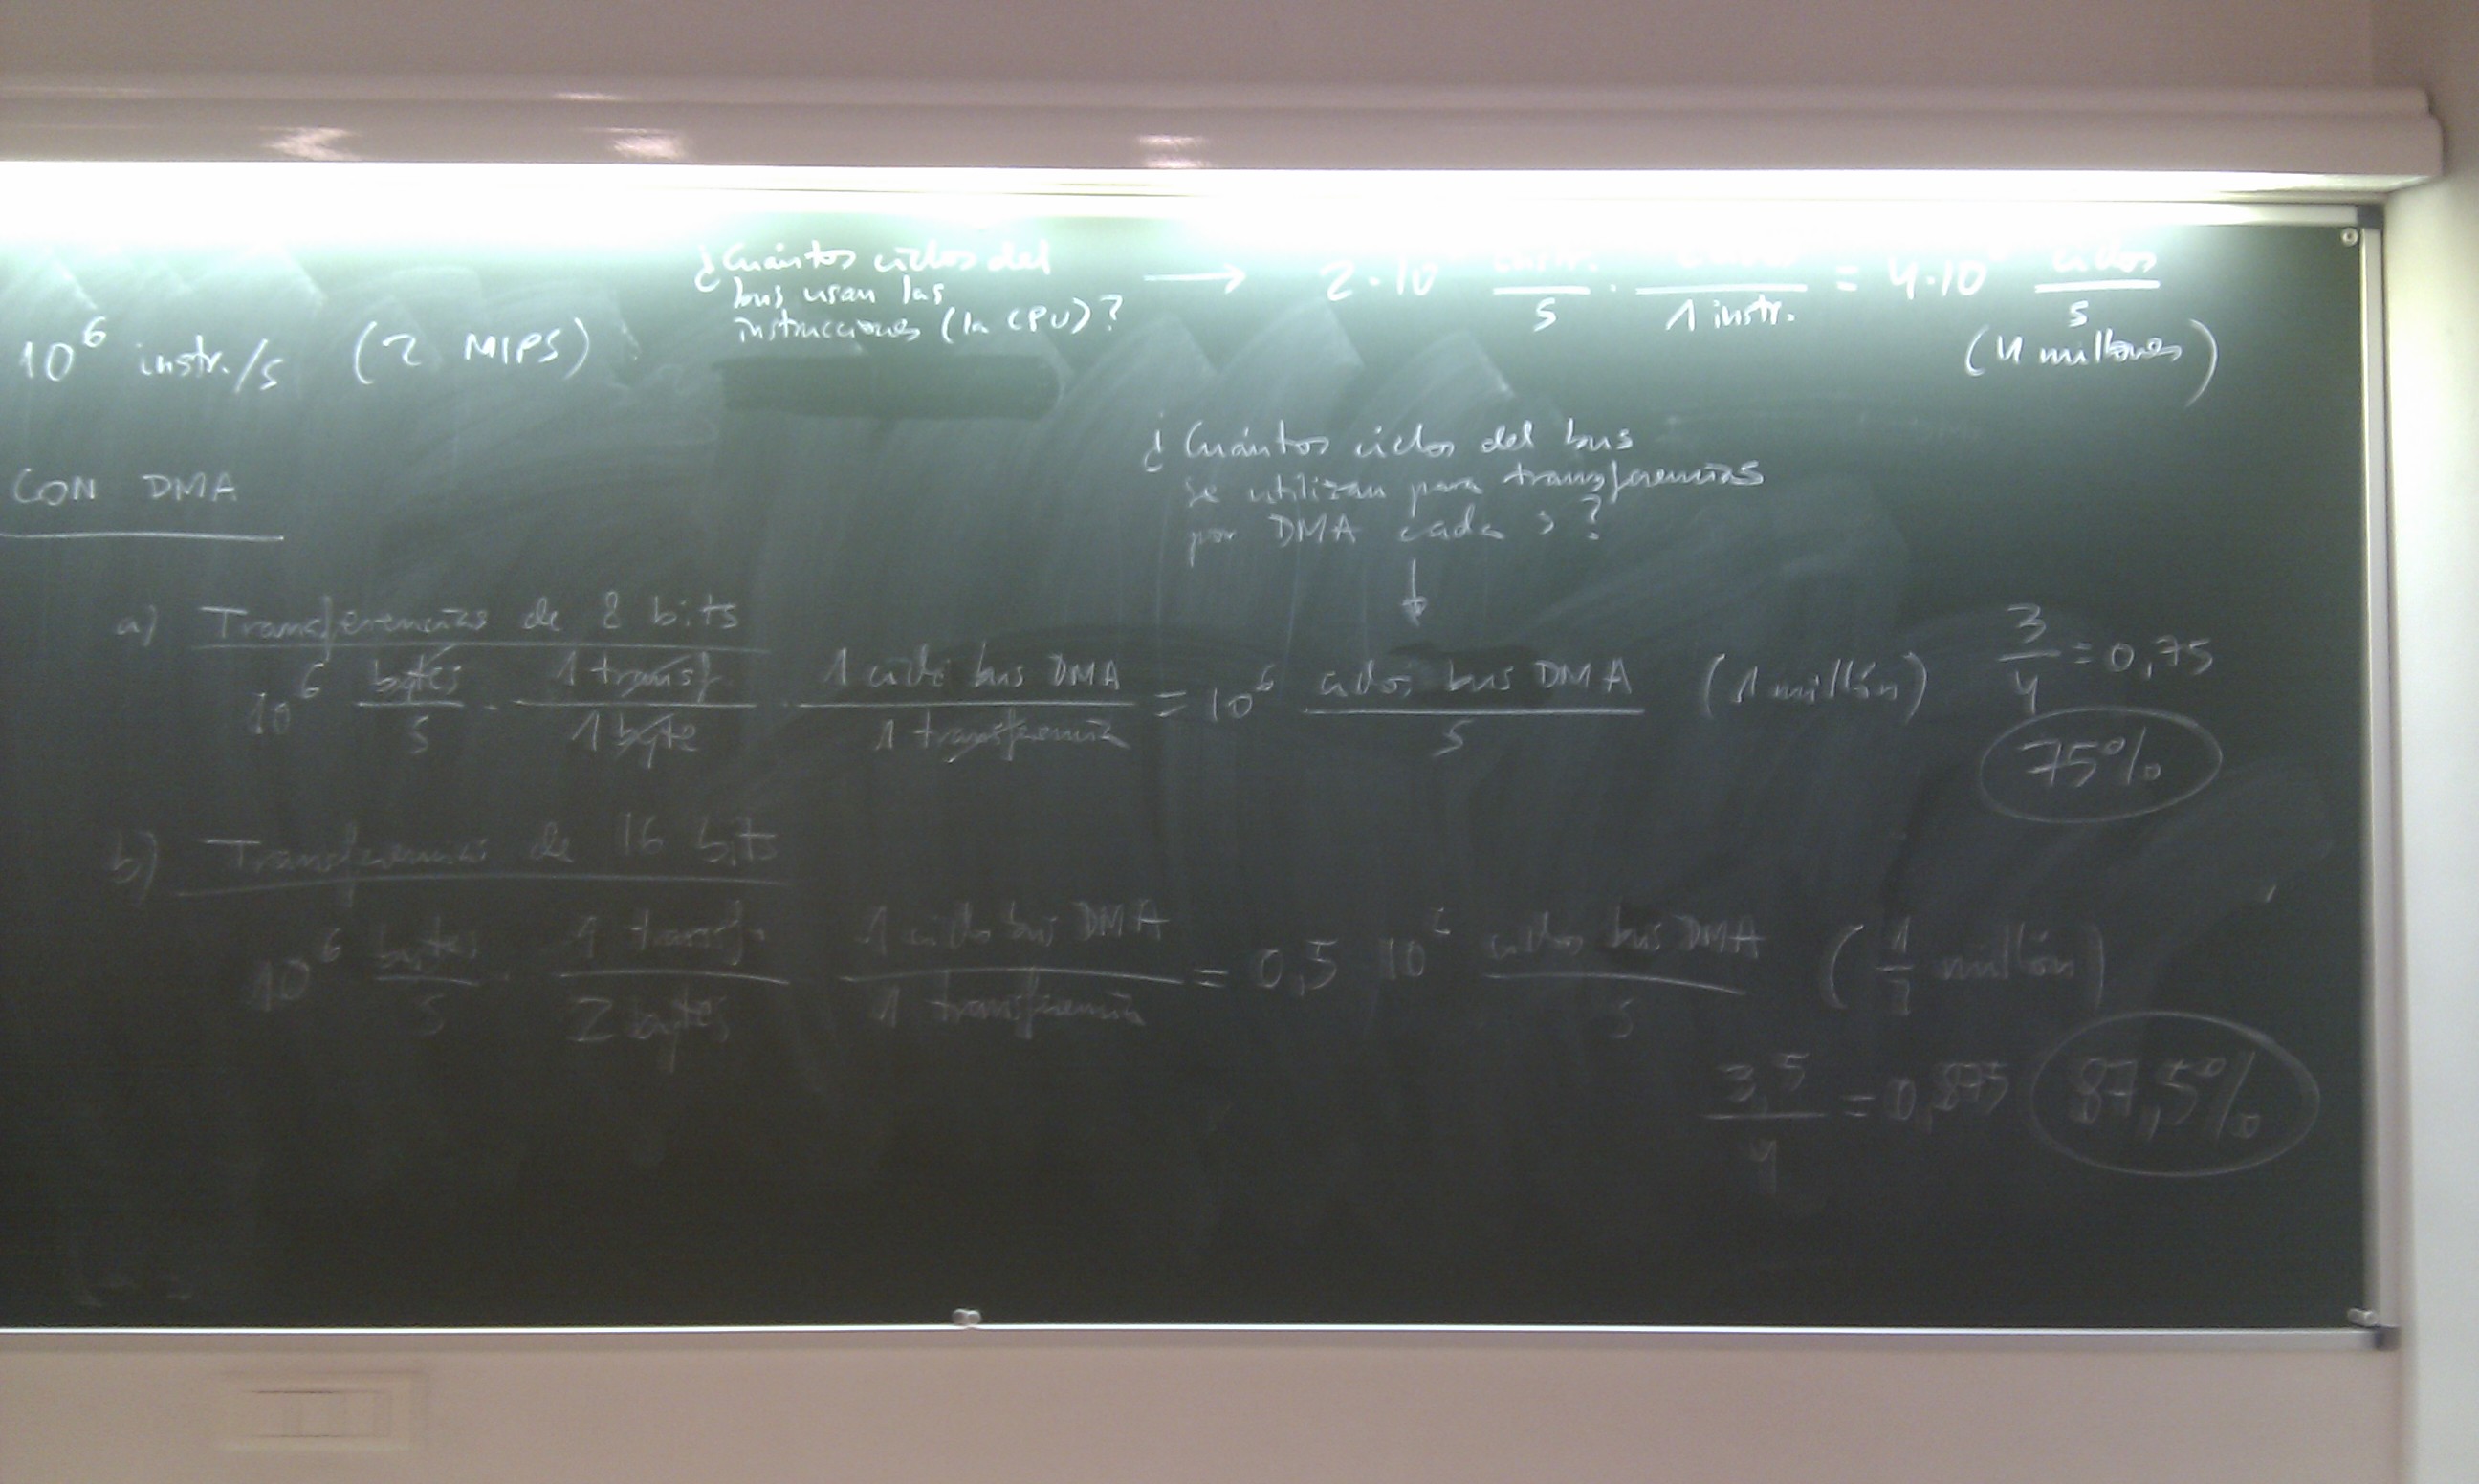 ¿Cuántos ciclos del
bus usan las
instrucciones (la CPU)?
→ 2·10 instr./s · /1 instr. = 4·10 ciclos/s
(4 millones)
10⁶ instr./s (2 MIPS)
CON DMA
¿Cuántos ciclos del bus
se utilizan para transferencias
por DMA cada s?
↓
a) Transferencias de 8 bits
10⁶ bytes/s · 1 transf./1 byte · 1 ciclo bus DMA/1 transferencia = 10⁶ ciclos bus DMA/s (1 millón)
3/4 = 0,75
75%
b) Transferencias de 16 bits
10⁶ bytes/s · 1 transf./2 bytes 1 ciclo bus DMA/1 transferencia = 0,5 10⁶ ciclos bus DMA/s (1/2 millón)
3,5/4 = 0,875 87,5%